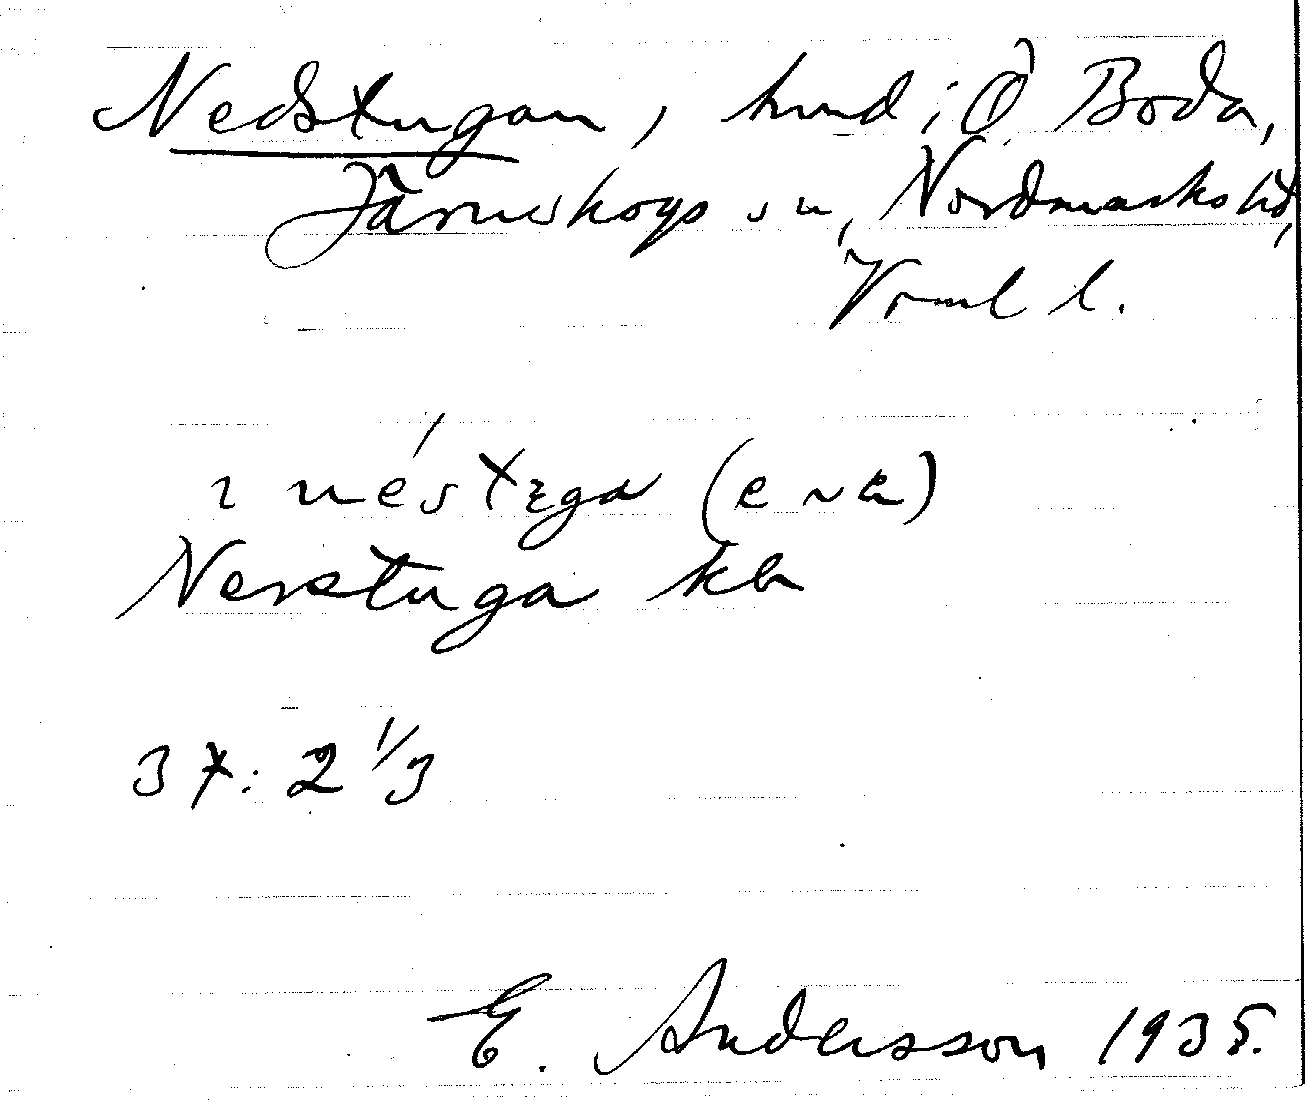 Nedstugan, hmd i Ö Boda,
Järnskogs sn, Nordmarks hd,
Vrml l.
ɿ néstɛga (e nɐ)
Nerstuga kb
37: 2 1/3
E. Andersson 1935.